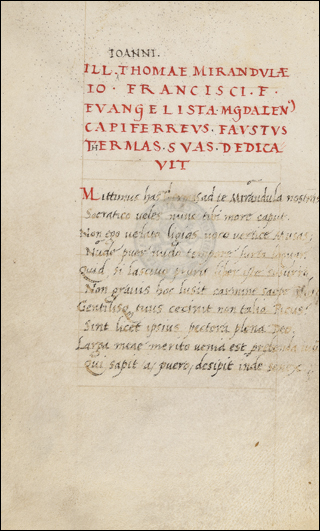 IOANNI.
ILL. THOMAE MIRANDVLÆ
IO. FRANCISCI. F.
EVANGELISTA. MGDALEN
CAPIFERREVS. FAVSTVS
THERMAS. SVAS. DEDICA
VIT
Mittimus has ad te Mirandula nostras
Socratico veles nunc tibi more caput.
Non ego velato vertice Musas,
Nude puer nudo furta
Quid si lascivus liber iste
Non gravius hoc lusit carmine saepe
Gentilis tuus cecinit non talia Picus
Sint licet ipsius pectora plena Deo.
Larga meae merito venia est
Qui sapit a puero, desipit inde